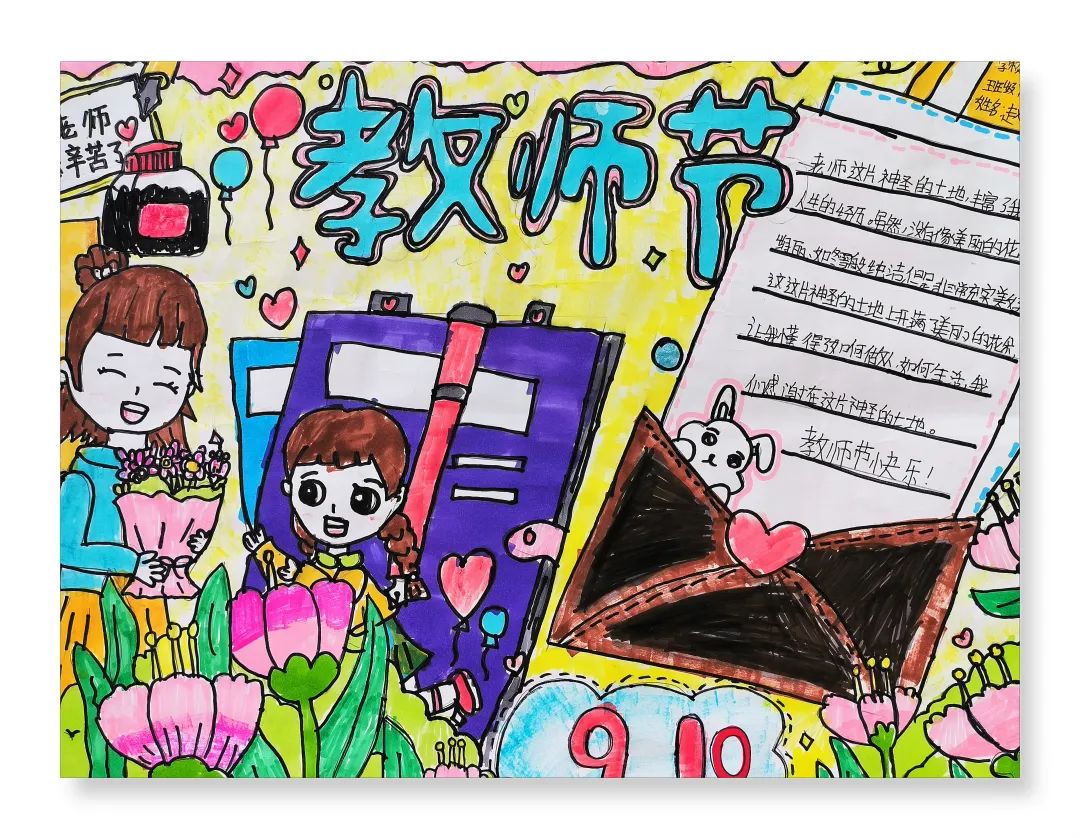 学校
班级
姓名
老师
辛苦了
教师节
老师这片神圣的土地丰富了我
人生的经历。虽然,没有像美丽的花
艳丽,如雪般纯洁但是非常充实美丽
这这片神圣的土地上开满了美丽的花朵
让我懂得了如何做人,如何生活,我
们感谢在这片神圣的土地。
教师节快乐!
9 10